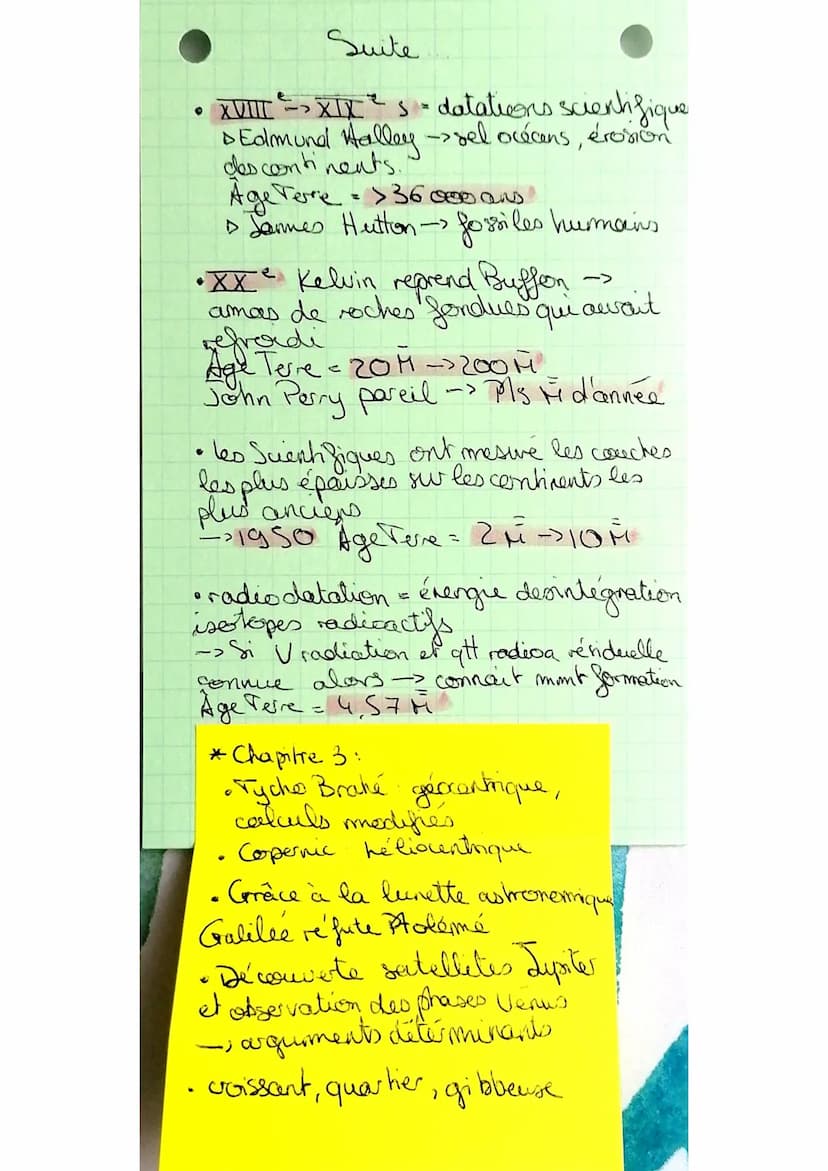 Suite ...
• XVIIIe -> XIXe s = datations scientifique
▷ Edmund Halley -> sel océcans, érosion
des continents.
Âge Terre = > 36 000 ans
▷ Jannes Hutton -> fossiles humains
• XXe Kelvin reprend Buffon ->
amas de roches fondues qui aurait
refroidi
Âge Terre = 20 M̄ -> 200 M̄
John Perry pareil -> Pls M̄ d'année
• les Scientifiques ont mesuré les couches
les plus épaisses sur les continents les
plus anciens
-> 1950 Âge Terre = 2 M̿ -> 10 M̿
• radiodatation = énergie desintégration
isotopes radioactifs
-> Si V radiation et qtt radioa résiduelle
connue alors -> connait mmt formation
Âge Terre = 4,57 M̿
* Chapitre 3 :
• Tycho Brahé géocentrique,
calculs modifiés
• Copernic héliocentrique
• Grâce à la lunette astronomique
Galilée réfute Ptolémé
• Découverte satellites Jupiter
et observation des phases Vénus
-> arguments détérminants
• croissant, quartier, gibbeuse